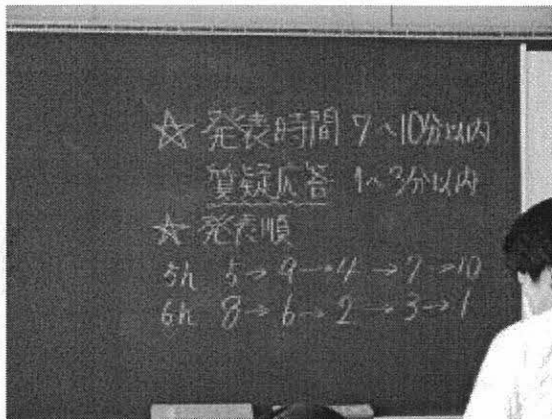 ☆ 発表時間 7~10分以内
質疑応答 1~3分以内
☆ 発表順
5h 5→9→4→7→10
6h 8→6→2→3→1